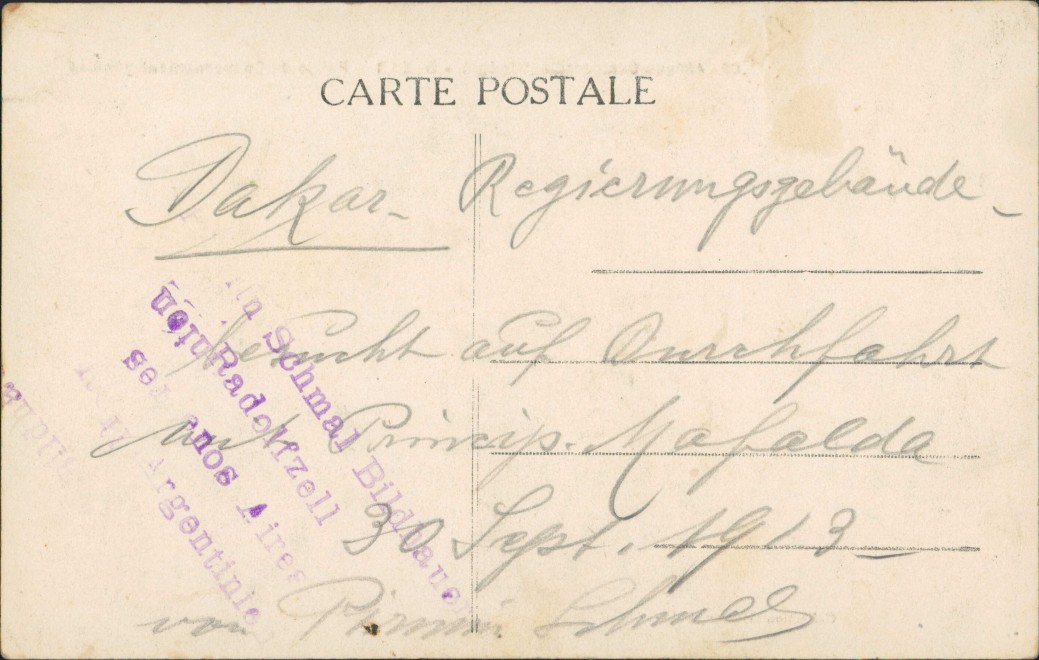 CARTE POSTALE
Dakar - Regierungsgebäude -
besucht auf Durchfahrt
mit Princip. Mafalda
30 Sept. 1913
von Pirmin Schmal
Schmal Bildhauer
Radolfzell
Aires
Argentinie